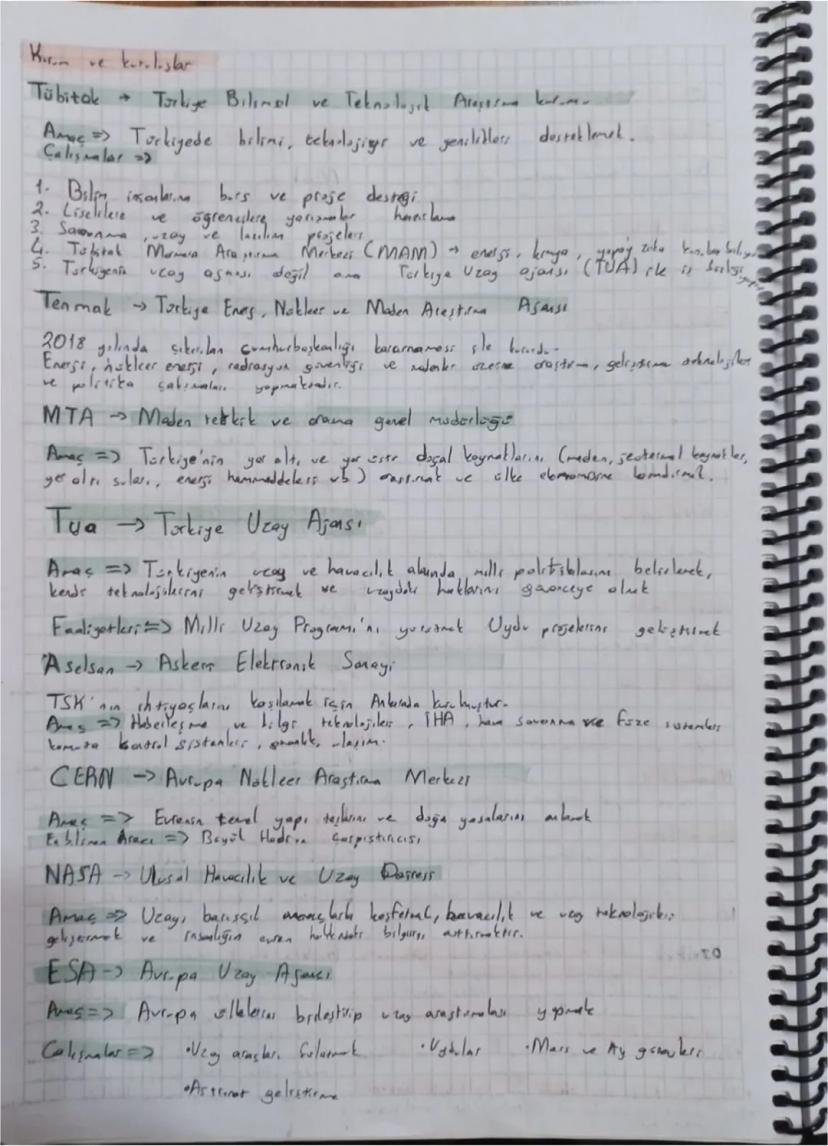 Kurum ve kuruluşlar
Tübitak → Türkiye Bilimsel ve Teknolojik Araştırma kurumu
Amaç => Türkiyede bilimi, teknolojiyi ve yenilikleri desteklemek.
Çalışmalar =>
1. Bilim insanlarına burs ve proje desteği
2. Liselilere ve öğrencilere yarışmalar hazırlama
3. Savunma, uzay ve projeleri
4. Tübitak Marmara Araştırma Merkezi (MAM) → enerji, kimya, yapay zeka
5. Türkiyenin uzay ajansı değil ama Türkiye Uzay ajansı (TUA) ile iş birliği
Tenmak → Türkiye Enerji, Nükleer ve Maden Araştırma Ajansı
2018 yılında çıkarılan cumhurbaşkanlığı kararnamesi ile kuruldu.
Enerji, nükleer enerji, radrasyon güvenliği ve madenler üzerine araştırma, geliştirme teknolojileri
ve politika çalışmaları yapmaktadır.
MTA → Maden tetkik ve arama genel müdürlüğü
Amaç => Türkiye'nin yer altı ve yer üstü doğal kaynaklarını (maden, jeotermal kaynaklar,
yer altı suları, enerji hammaddeleri vb) araştırmak ve ülke ekonomisine kazandırmak.
Tua → Türkiye Uzay Ajansı
Amaç => Türkiyenin uzay ve havacılık alanında milli politikalarını belirlemek,
kendi teknolojilerini geliştirmek ve uzaydaki haklarını güvenceye almak
Faaliyetleri => Milli Uzay Programı'nı yürütmek Uydu projelerini geliştirmek
Aselsan → Askeri Elektronik Sanayi
TSK'nın ihtiyaçlarını karşılamak için Ankarada kurulmuştur.
Amaç => Haberleşme ve bilgi teknolojileri, İHA, hava savunma ve füze sistemleri
komuta kontrol sistemleri, güvenlik, ulaşım.
CERN → Avrupa Nükleer Araştırma Merkezi
Amaç => Evrenin temel yapı taşlarını ve doğa yasalarını anlamak
Aracı => Büyük Hadron Çarpıştırıcısı
NASA → Ulusal Havacılık ve Uzay Dairesi
Amaç => Uzayı barışçıl amaçlarla keşfetmek, havacılık ve uzay teknolojileri
geliştirmek ve insanlığın evren hakkındaki bilgisini arttırmaktır.
ESA → Avrupa Uzay Ajansı
Amaç => Avrupa ülkelerini birleştirip uzay araştırmaları yapmak
Çalışmalar => •Uzay araçları fırlatmak •Uydular •Mars ve Ay görevleri
•Astronot geliştirme